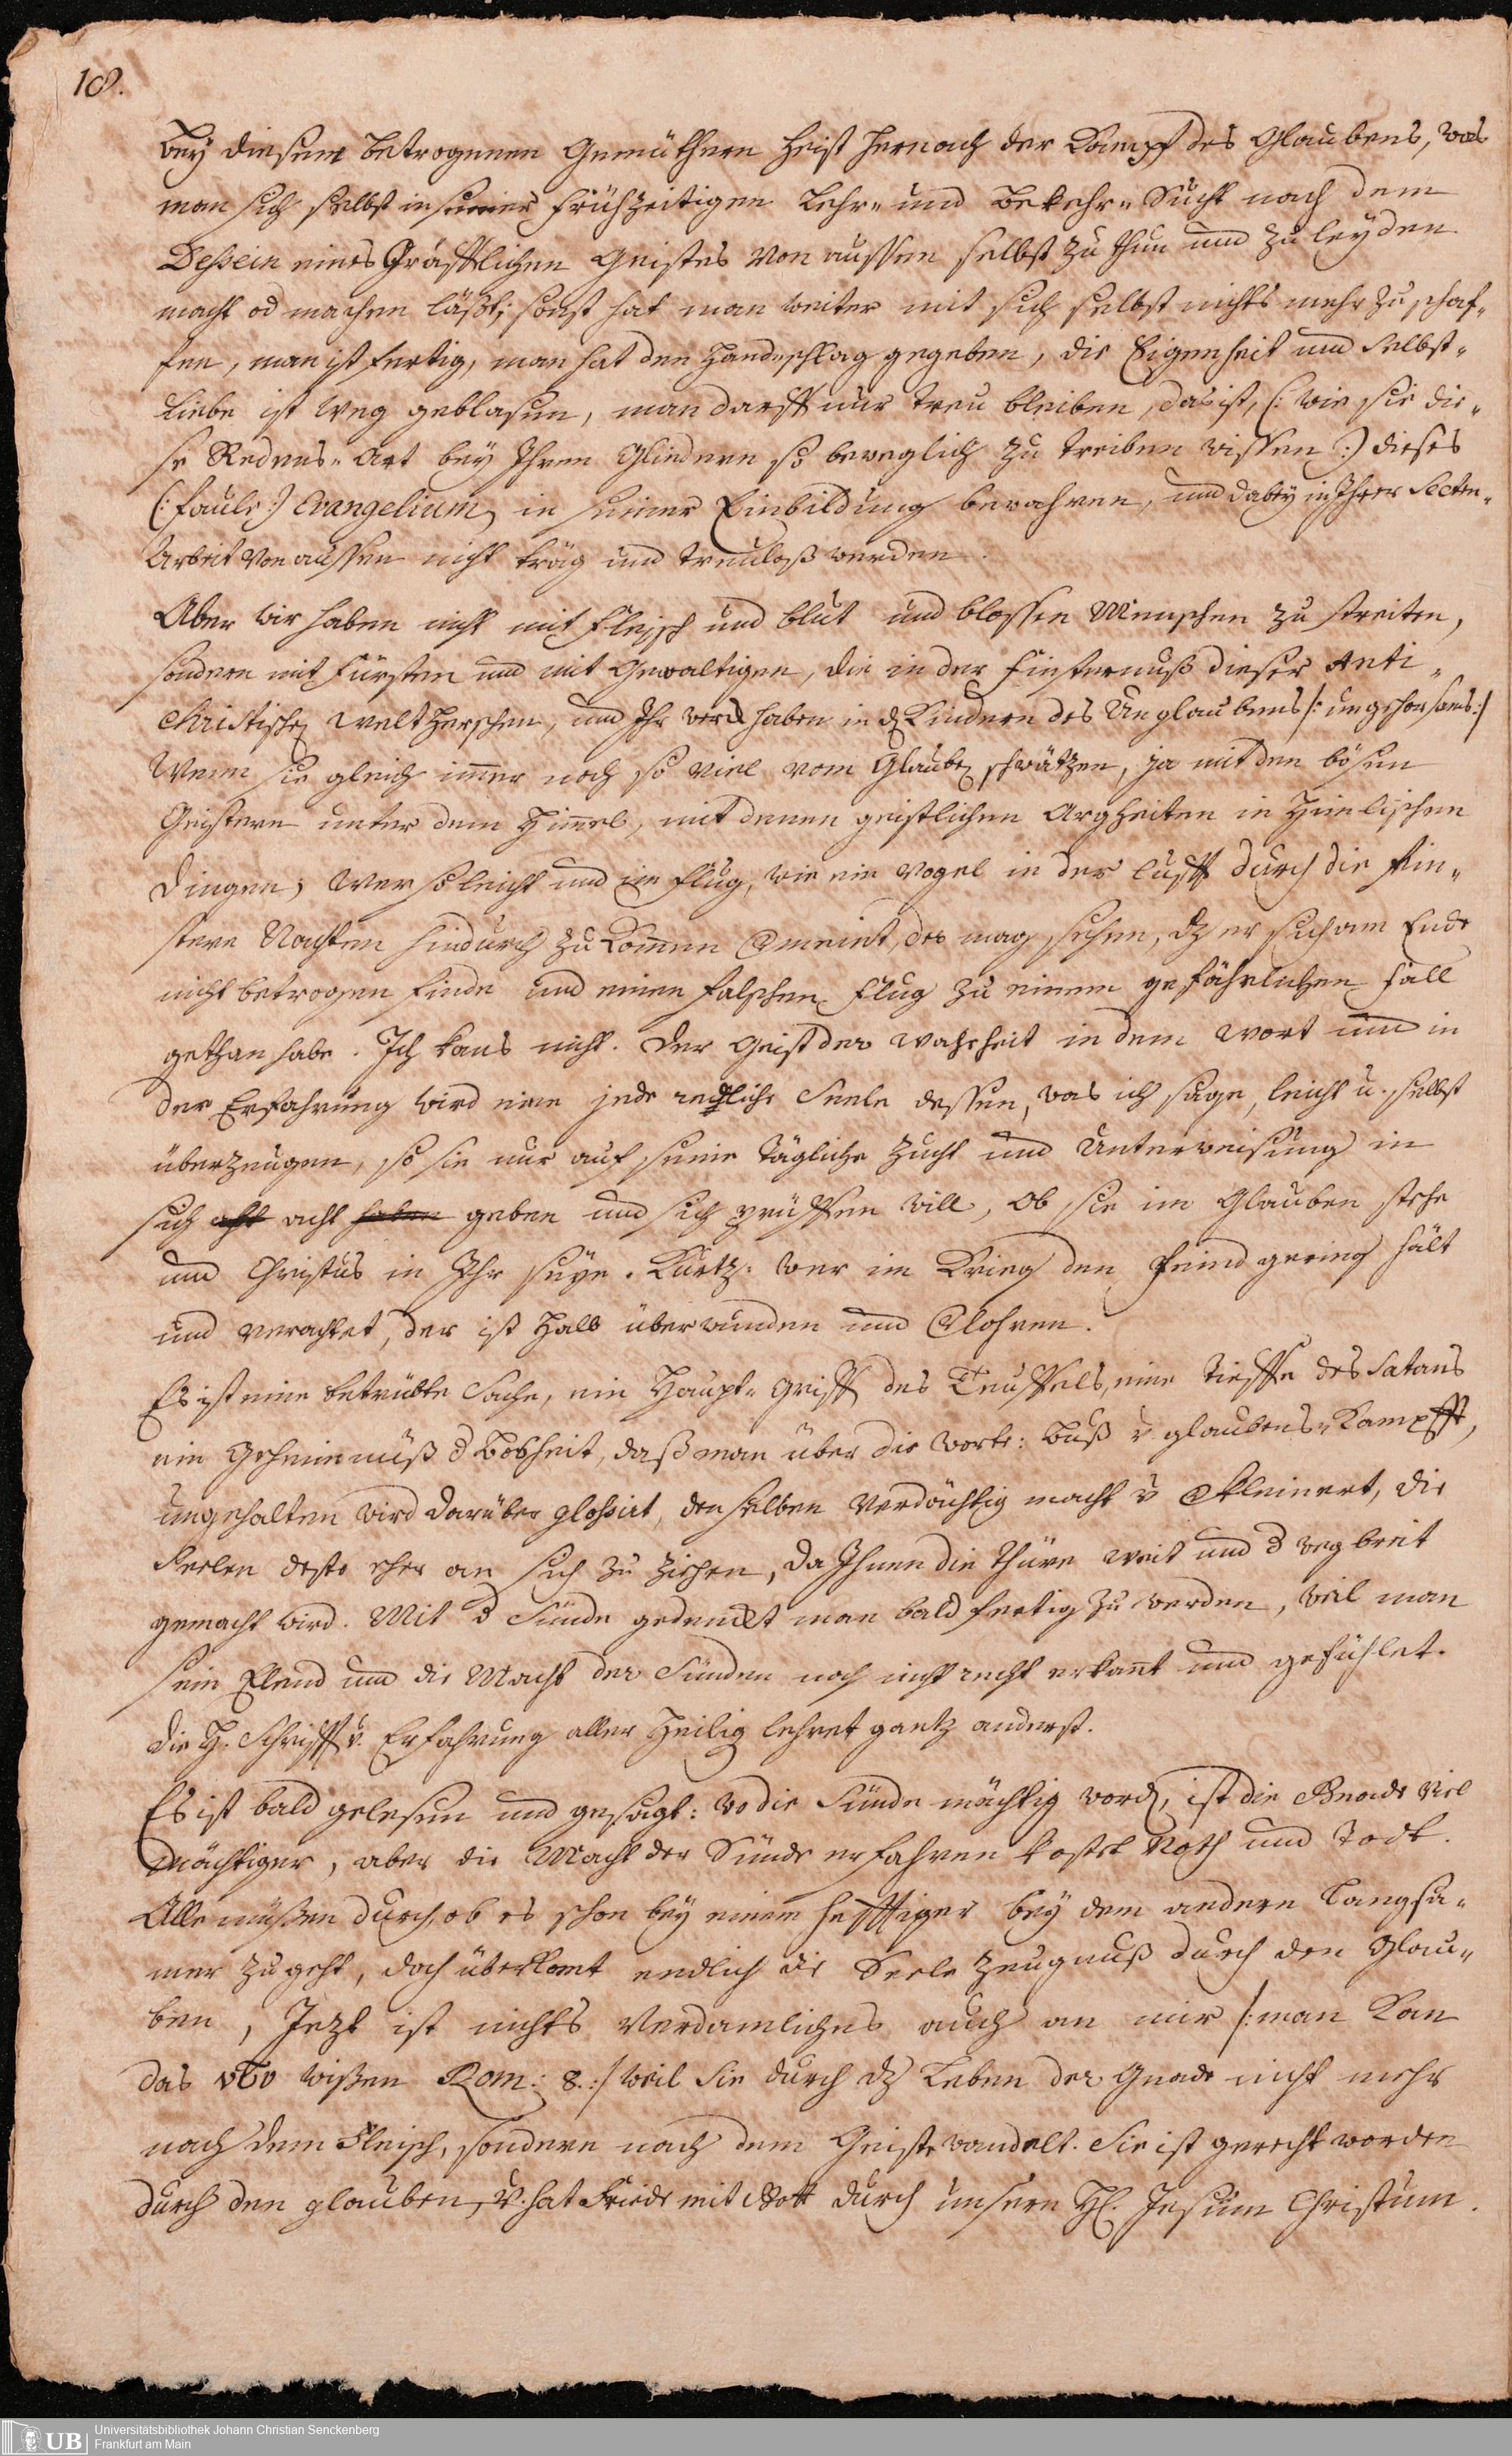 18.
Bey diesen betrogenen Gemüthern heist hernach der Kampf des Glaubens, was
man sich selbst in seiner frühzeitigen Lehr- und Bekehr-Sucht nach dem
Dessein eines Gräfflichen Geistes von aussen selbst zu thun und zu leyden
macht od machen läßt; sonst hat man weiter mit sich selbst nichts mehr zu schaf-
fen, man ist fertig, man hat den Handschlag gegeben, die Eigenheit und Selbst-
Liebe ist weg geblasen, man darff nur treu bleiben, das ist, (: wie sie die-
se Redens-Art bey Ihren Gliedern so beweglich zu treiben wissen :) dieses
(: faule :) Evangelium in seiner Einbildung bewahren, und dabey in Ihrer Secten-
Arbeit von aussen nicht träg und treuloß werden.
Aber wir haben nicht mit Fleisch und Blut und blossen Menschen zu streiten,
sondern mit Fürsten und mit Gewaltigen, die in der Finsternuß dieser Anti-
christischen Welt herschen, und Ihr werck haben in d Kindern des Unglaubens /: ungehorsams :/
Wenn sie gleich immer noch so viel vom Glauben schwätzen, ja mit den bösen
Geistern unter dem Himmel, mit denen geistlichen Argheiten in Himlischen
Dingen; Wer so leicht und im Flug, wie ein Vogel in der Lufft durch die Fin-
stere Nachten hindurch zu kommen vermeint, der mag sehen, dz er sich am Ende
nicht betrogen finde und einen falschen Flug zu einem gefährlichen Fall
gethan habe. Ich kans nicht. Der Geist der Wahrheit in dem Wort und in
der Erfahrung wird eine jede redliche Seele dessen, was ich sage, leicht u. selbst
überzeugen, so sie nur auf seine tägliche Zucht und Unterweisung in
sich acht geben und sich prüffen will, ob sie im Glauben stehe
und Christus in Ihr seye. Kurtz: wer im Krieg den Feind gering hält
und verachtet, der ist halb überwunden und verlohren.
Es ist eine betrübte Sache, ein Haupt-Griff des Teuffels, eine Tieffe des Satans
ein Geheimnuß d Boßheit, daß man über die Worte: Buß u glaubens-Kampfft,
ungehalten wird darüber glossirt, denselben verdächtig macht u verkleinert, die
Seelen desto eher an sich zu ziehen, da Ihnen die Thüre weit und d weg breit
gemacht wird. Mit d Sünde gedenckt man bald fertig zu werden, weil man
sein Elend und die Macht der Sünden noch nicht recht erkant und gefühlet.
Die H. Schrifft u. Erfahrung aller Heilig lehret gantz anderst.
Es ist bald gelesen und gesagt: wo die Sünde mächtig word, ist die Gnade viel
mächtiger, aber die Macht der Sünde erfahren kostet Noth und Todt.
Alle müßen durch, ob es schon bey einem hefftiger bey dem andern Langsa-
mer zugeht, doch überkomt endlich die Seele Zeugnuß durch den Glau-
ben, Jezt ist nichts verdamliches auch an mir /: man kan
das wissen Rom: 8. :/ weil Sie durch dz Leben der Gnade nicht mehr
nach dem Fleisch, sondern nach dem Geiste wandelt. Sie ist gerecht worden
durch den glauben, u. hat Friede mit Gott durch unsern H. Jesum Christum.
UB
Universitätsbibliothek Johann Christian Senckenberg
Frankfurt am Main